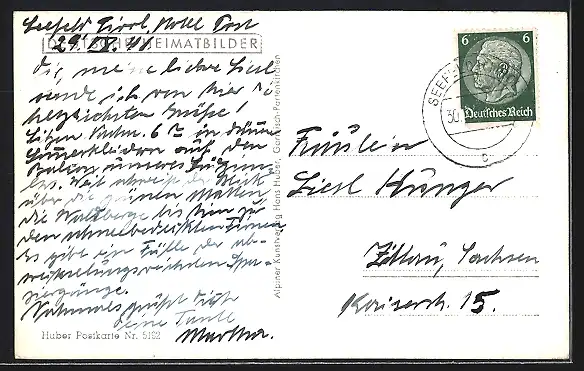 Seefeld Tirol, Hotel Post
29. IV. 41.
DEUTSCHE HEIMATBILDER
Dir, meine liebe Liesl
sende ich von hier
herzlichsten Grüße!
Sitzen Nachm. 6 h in dünnen
Sommerkleidern auf dem
Balkon unseres
Weit schweift der Blick
über die grünen Matten,
die Waldberge bis hin zu
den schneebedeckten Firnen
Es gibt ein Fülle der ab-
wechselungsreichsten Spa-
ziergänge.
Nochmals grüßt Dich
deine Tante
Martha.
Huber Postkarte Nr. 5192
Alpiner Kunstverlag Hans Huber, Garmisch-Partenkirchen
6 6
Deutsches Reich
SEEF
30.
b
Fräulein
Liesl Hünger
Zittau, Sachsen
Kaiserstr. 15.